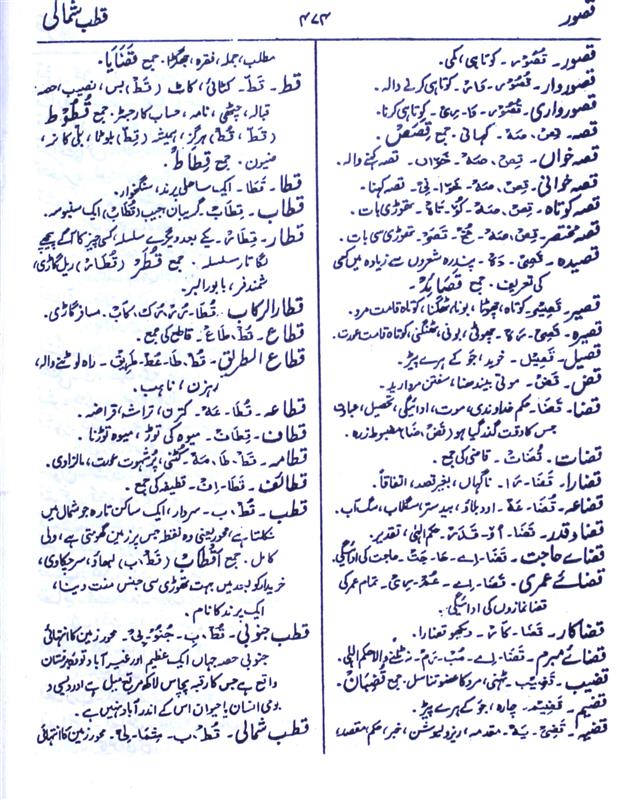 قصور
۴۷۴
قطب شمالی
قصور۔ قُصُوْر۔ کوتاہی، کمی۔
قصوروار۔ قُصُوْر۔ وَار۔ کوتاہی کرنے والہ۔
قصورواری۔ قُصُوْر۔ وَا۔ رِی۔ کوتاہی کرنا۔
قصہ۔ قِص۔ صَہ۔ کہانی۔ جمع قِصَص۔
قصہ خواں۔ قِص۔ صَہ۔ خَواں۔ قصہ کہنے والہ۔
قصہ خوانی۔ قِص۔ صَہ۔ خَوَا۔ نِی۔ قصہ کہنا۔
قصہ کوتاہ۔ قِص۔ صَہ۔ کُو۔ تَاہ۔ تھوڑی بات۔
قصہ مختصر۔ قِص۔ صَہ۔ مُخ۔ تَصَر۔ تھوڑی سی بات۔
قصیدہ۔ قَصِی۔ دَہ۔ پندرہ شعروں سے زیادہ میں کسی
کی تعریف۔ جمع قَصَائِد۔
قصیر۔ قَصِیر۔ چھوٹا، بونا، ٹھگنا، کوتاہ قامت مرد۔
قصیرہ۔ قَصِی۔ رَہ۔ چھوٹی، بونی، ٹھنگنی، کوتاہ قامت عورت۔
قصیل۔ قَصِیْل۔ خرید، جَو کے ہرے پیڑ۔
قض۔ قَض۔ موتی بیندھنا، سفتن مروارید۔
قضا۔ قَضَا۔ حکم خداوندی، موت، ادائیگی، تحصیل، عبادت
جس کا وقت گذر گیا ہو (قَض، ضَا) مضبوط زرہ۔
قضات۔ قُضَات۔ قاضی کی جمع۔
قضارا۔ قَضَا۔ رَا۔ ناگہاں، بغیر قصد، اتفاقاً۔
قضاعہ۔ قُضَا۔ عَہ۔ اود بلاؤ، بیدستر، سگلاب، سگ آب۔
قضا و قدر۔ قَضَا۔ اَوْ۔ قَدَر۔ حکم الہی، تقدیر۔
قضائے حاجت۔ قَضَا۔ اے۔ حَا۔ جَت۔ حاجت کی ادائیگی۔
قضائے عمری۔ قَضَا۔ اے۔ عُم۔ رِی۔ تمام عمر کی
قضا نمازوں کی ادائیگی۔
قضا کار۔ قَضَا۔ کَار۔ دیکھو قضارا۔
قضائے مبرم۔ قَضَا۔ اے۔ مُب۔ رَم۔ نہ ٹلنے والا حکم الہی۔
قضیب۔ قَضِیب۔ ٹہنی، مرد کا عضو تناسل۔ جمع قُضْبَان۔
قضیم۔ قَضِیْم۔ چارہ، جَو کے ہرے پیڑ۔
قضیہ۔ قَضِی۔ یَہ۔ مقدمہ، ریزولیوشن، خبر، حکم، مقصد،
مطلب، جملہ، فقرہ، جھگڑا۔ جمع قَضَایَا۔
قط۔ قَط۔ کٹائی، کاٹ (قَط) بس، نصیب، حصہ
قبالہ، چٹھی، نامہ، حساب کا رجسٹر۔ جمع قُطُوط
(قَط، قُط) ہرگز، ہمیشہ (قِط) بوٹا، بلی کا نر،
جمع قِطَاط۔
قطا۔ قَطَا۔ ایک ساحلی پرند، سنگخوار۔
قطاب۔ قِطَاب۔ گریبان، جیب (قُطَاب) ایک سنبوسہ۔
قطار۔ قِطَار۔ یکے بعد دیگرے سلسلہ، کسی چیز کا آگے پیچھے
لگاتار سلسلہ۔ جمع قُطُر (قُطَار) ریل گاڑی،
شمندفر، بابورالبر۔
قطار الرکاب۔ مسافر گاڑی۔
قطاع۔ قُط، طَاع۔ قاطع کی جمع۔
قطاع الطریق۔ قُط۔ طَا۔ عُط۔ طَرِیْق۔ راہ لوٹنے والہ،
رہزن، ناہب۔
قطاعہ۔ قُطَا۔ عَہ۔ کترن، تراشہ، قراضہ۔
قطاف۔ قِطَاف۔ میوہ کی توڑ، میوہ توڑنا۔
قطامہ۔ قَط۔ طَا۔ مَہ۔ کٹنی، پُر شہوت عورت، مالزادی۔
قطائف۔ قَطَا۔ اِف۔ قطیفہ کی جمع۔
قطب۔ قُط۔ ب۔ سردار، ایک ساکن تارہ جو شمال میں
نکلتا ہے، محور یعنی وہ نقطہ جس پر زمین گھومتی ہے، ولی
کامل۔ جمع اَقْطَاب (قَط۔ ب) لبھاؤ، سرچکاوی،
خریدار کو بعد میں بہت تھوڑی سی جنس مفت دینا،
ایک پرند کا نام۔
قطب جنوبی۔ قُط۔ ب۔ جُنُو۔ بِی۔ محور زمین کا انتہائی
جنوبی حصہ جہاں ایک عظیم اور غیر آباد تودہ برفستان
واقع ہے جس کا رقبہ پچاس لاکھ مربع میل ہے اور دیسی و
بدی انسان یا حیوان اس کے اندر آباد نہیں ہے۔
قطب شمالی۔ قُط۔ ب۔ شِمَا۔ لِی۔ محور زمین کا انتہائی